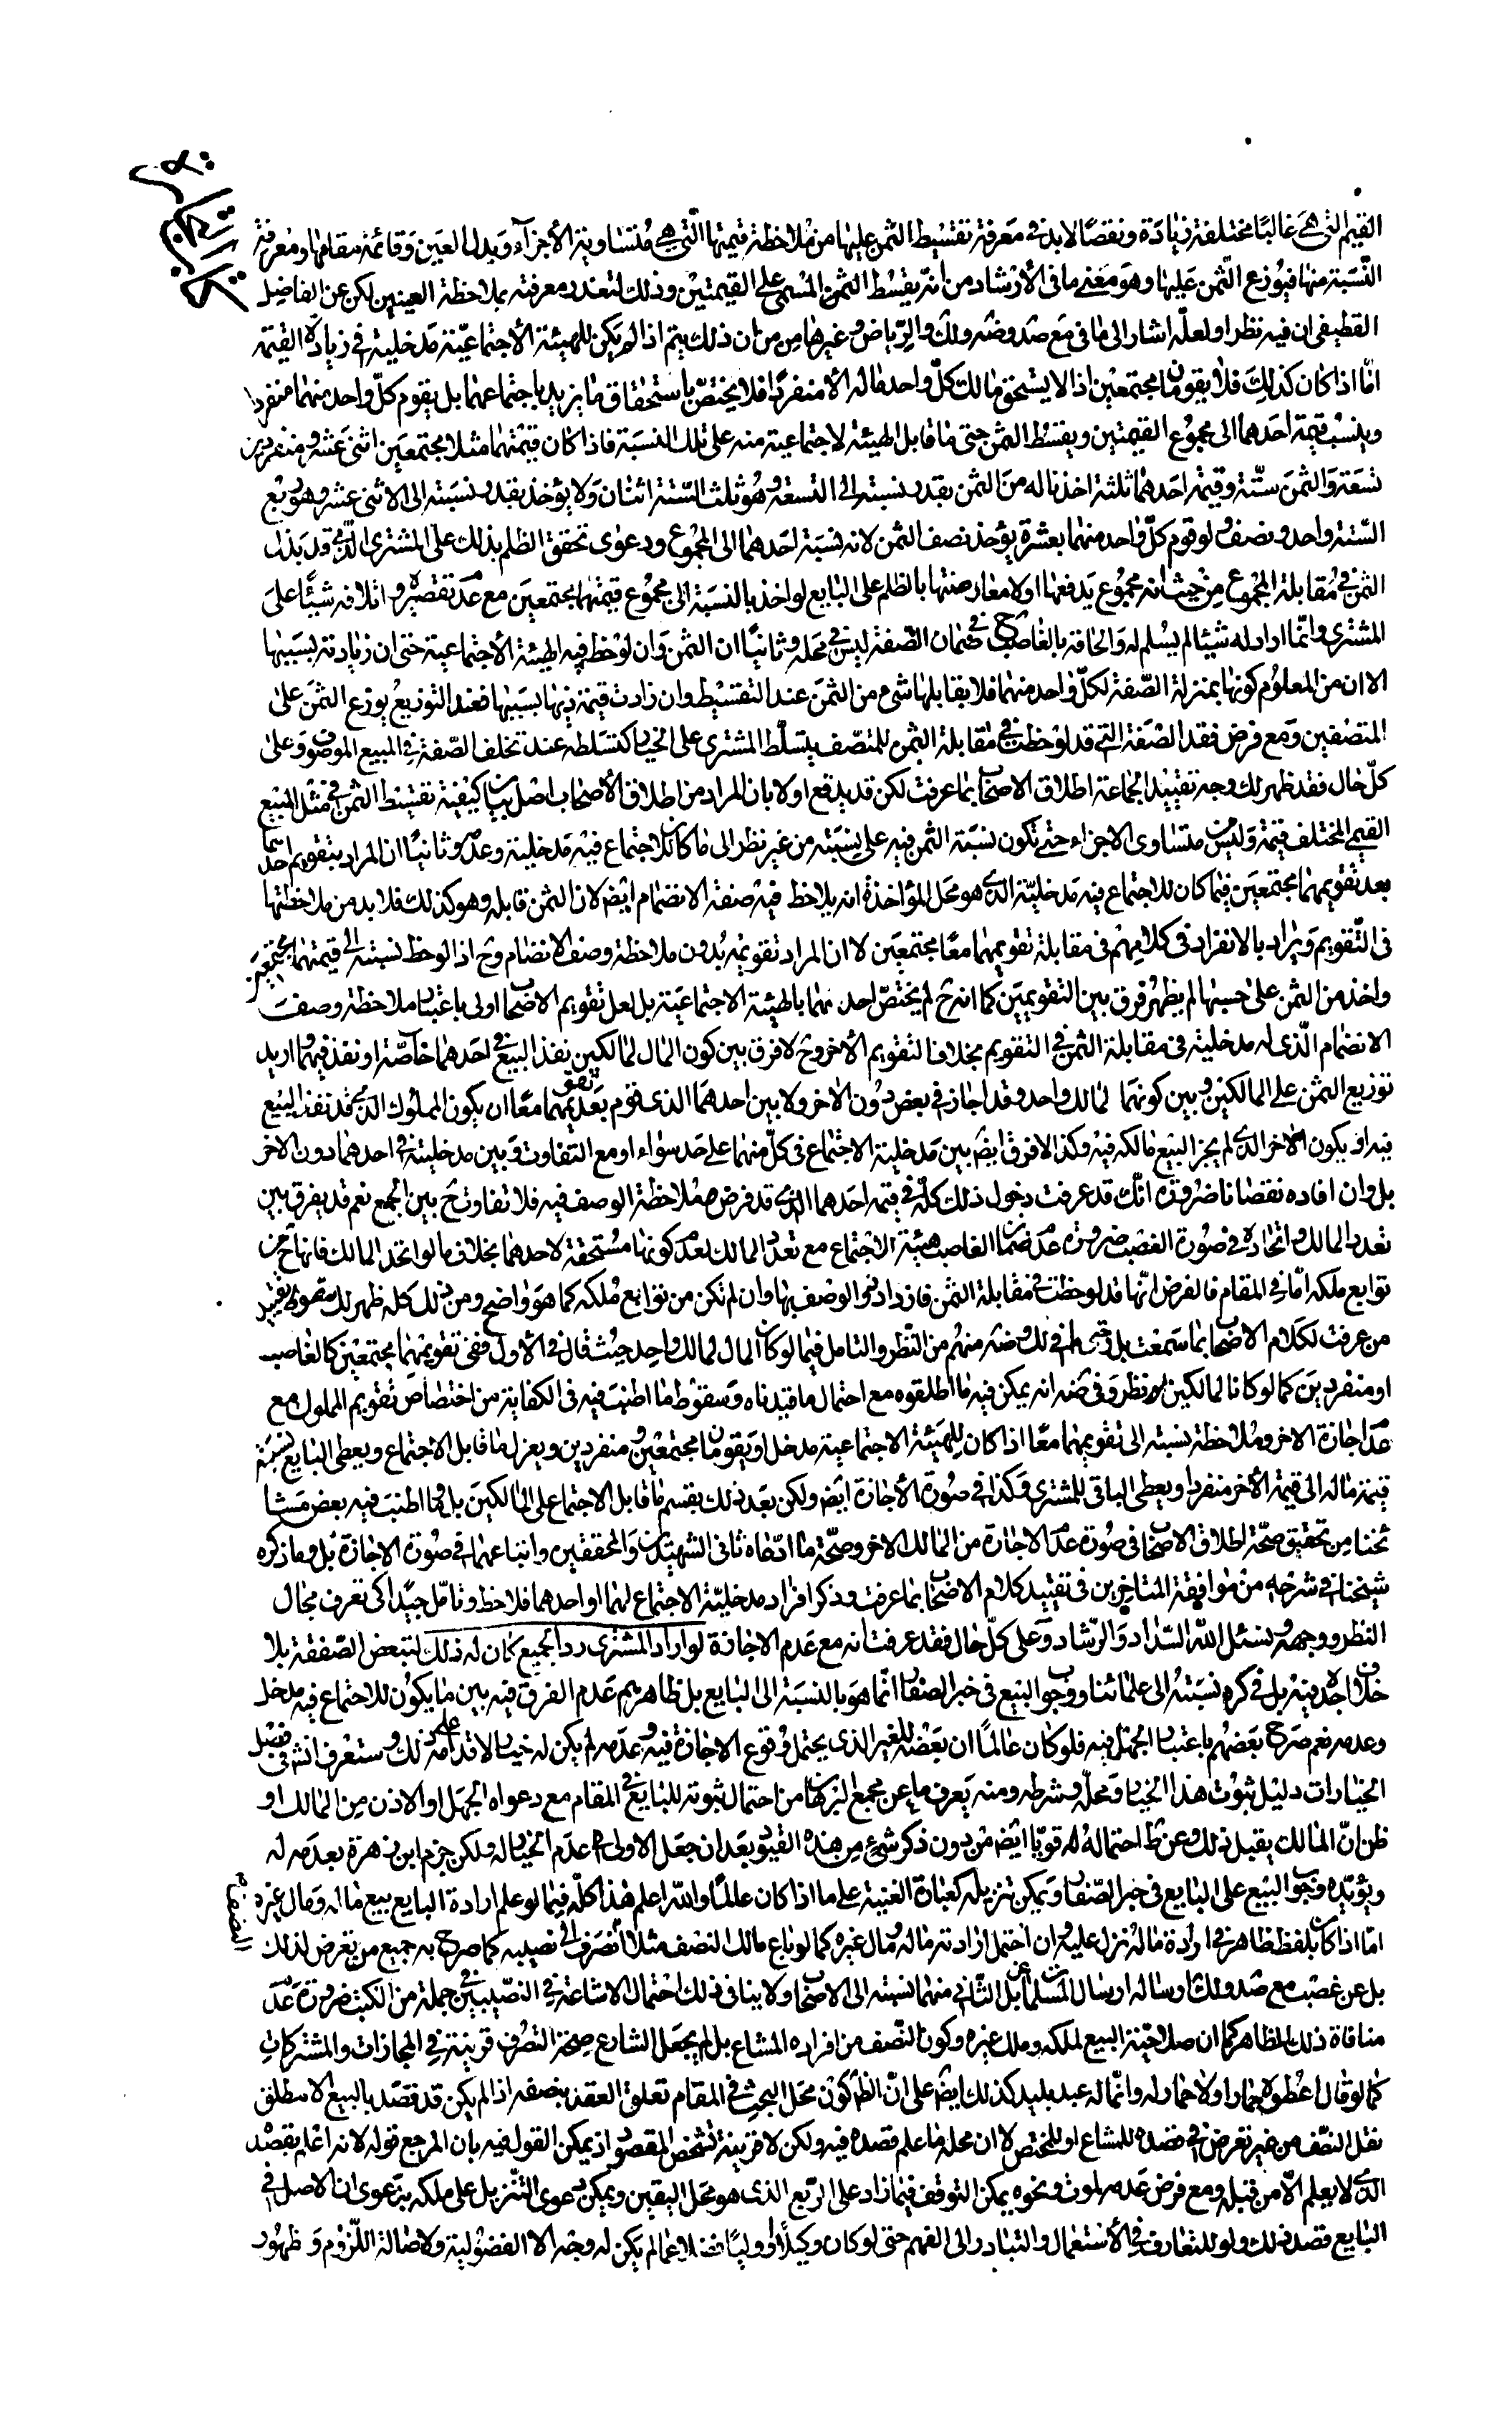 القيم التى هى غالبا مختلفة زيادة ونقصا لا بد فى معرفة تقسيط الثمن عليها من ملاحظة قيمتها التى هى متساوية الأجزاء وبدل العين وقائمة مقامها ومعرفة
النسبة منها فيوزع الثمن عليها وهو معنى ما فى الأرشاد من انه يقسط الثمن المسمى على القيمتين وذلك لتعذر معرفته بملاحظة العينين لكن عن الفاضل
القطيفى ان فيه نظرا ولعله اشار الى ما فى مع صد وضه ولك والرياض وغيرها من ان ذلك يتم اذا لم يكن للهيئة الأجتماعية مدخلية فى زيادة القيمة
امّا اذا كان كذلك فلا يقومان مجتمعين اذ لا يستحق مالك كل واحد ماله الا منفردا فلا يختص باستحقاق ما يزيد باجتماعهما بل يقوم كل واحد منهما منفردا
وينسب قيمة احدهما الى مجموع القيمتين ويقسط الثمن حتى ما قابل الهيئة لاجتماعية منه على تلك النسبة فاذا كان قيمتهما مثلا مجتمعين اثنى عشر ومنفردين
تسعة والثمن ستة وقيمة احدهما ثلثة اخذنا له من الثمن بقدر نسبته الى التسعة وهو ثلث الستة اثنان ولا يؤخذ بقدر نسبته الى الاثنى عشر وهو ربع
الستة واحد ونصف ولو قوم كل واحد منهما بعشرة يؤخذ نصف الثمن لانه نسبة احدهما الى المجموع ودعوى تحقق الظلم بذلك على المشترى الذى قد بذل
الثمن فى مقابلة المجموع من حيث انه مجموع يدفعها اولا معارضتها بالظلم على البايع لو اخذ بالنسبة الى مجموع قيمتهما مجتمعين مع عدم تقصيره واتلافه شيئا على
المشترى وانما اراد له شيئا لم يسلم له والحاقه بالغاصب فى ضمان الصفة ليس فى محله وثانيا ان الثمن وان لوحظ فيه الهيئة الأجتماعية حتى ان زيادته بسببها
الا ان من المعلوم كونها بمنزلة الصفة لكل واحد منهما فلا يقابلها شئ من الثمن عند التقسيط وان زادت قيمة ذيها بسببها فعند التوزيع يوزع الثمن على
المتصفين ومع فرض فقد الصفة التى قد لوحظت فى مقابلة الثمن للمتصف يتسلط المشترى على الخيار كتسلطه عند تخلف الصفة فى المبيع الموصوف وعلى
كل حال فقد ظهر لك وجه تقييد الجماعة اطلاق الاصحاب بما عرفت لكن قد يدفع اولا بان المراد من اطلاق الأصحاب اصل بيان كيفية تقسيط الثمن فى مثل المبيع
القيمى المختلف قيمة وليس من متساوى الاجزاء حتى تكون نسبة الثمن فيه على نسبته من غير نظر الى ما كان للاجتماع فيه مدخلية وعدمه وثانيا ان المراد بتقويم احدهما
بعد تقويمهما مجتمعين فيما كان للاجتماع فيه مدخلية الذى هو محل المؤاخذة انه يلاحظ فيه صفة الانضمام ايضا لان الثمن قابله وهو كذلك فلا بد من ملاحظتها
فى التقويم ويراد بالانفراد فى كلامهم فى مقابلة تقويمهما معا مجتمعين لا ان المراد تقويمه بدون ملاحظة وصف الانضمام وح اذا لوحظ نسبته الى قيمتهما مجتمعين
واخذ من الثمن على حسبها لم يظهر فرق بين التقويمين كما انه ح لم يختص احدهما بالهيئة الاجتماعية بل لعل تقويم الاصحاب اولى باعتبار ملاحظة وصف
الانضمام الذى له مدخلية فى مقابلة الثمن فى التقويم بخلاف التقويم الأخر وح لا فرق بين كون المال لمالكين نفذ البيع فى احدهما خاصة او نفذ فيهما واريد
توزيع الثمن على المالكين وبين كونهما لمالك واحد وقد اجاز فى بعض دون الاخر ولا بين احدهما الذى قوم بعد تقويمهما معا ان يكون المملوك الذى قد نفذ البيع
فيه او يكون الاخر الذى لم يجز البيع مالكه فيه وكذا لا فرق ايضا بين مدخلية الاجتماع فى كل منهما على حد سواء او مع التفاوت وبين مدخليته فى احدهما دون الاخر
بل وان افاده نقصانا ضرورة انك قد عرفت دخول ذلك كله فى قيمة احدهما الذى قد فرض ملاحظة الوصف فيه فلا تفاوت ح بين الجمع نعم قد يفرق بين
تعدد المالك واتحاده فى صورة الغصب ضرورة عدم ضمان الغاصب هيئة الاجتماع مع تعدد المالك لعدم كونها مستحقة لاحدهما بخلاف ما لو اتحد المالك فانها ح من
توابع ملكه امّا فى المقام فالفرض انها قد لوحظت فى مقابلة الثمن فازداد ذو الوصف بها وان لم تكن من توابع ملكه كما هو واضح ومن ذلك كله ظهر لك
من عرفت لكلام الاصحاب بما سمعت بل وفى ما فى لك وضه منهم من النظر والتامل فيما لو كان المال لمالك واحد حيث قال فى الأول ففى تقويمهما مجتمعين كالغاصب
او منفردين كما لو كانا لمالكين نظر وفى ضه انه يمكن فيه ما اطلقوه مع احتمال ما قيدناه وسقوط ما اطنب فيه فى الكفاية من اختصاص تقويم المملوك مع
عدم اجازة الاخر وملاحظة نسبته الى تقويمهما معا اذا كان للهيئة الاجتماعية مدخل او يقومان مجتمعين ومنفردين ويعزل ما قابل الاجتماع ويعطى البايع نسبة
قيمة ماله الى قيمة الأخر منفردا ويعطى الباقى للمشترى وكذا فى صورة الأجازة ايضا ولكن بعد ذلك يقسم ما قابل الاجتماع على المالكين بل وما اطنب فيه بعض مشا
يخنا من تحقيق صحة اطلاق الاصحاب فى صورة عدم الاجازة من المالك الاخر وصحة ما ادعاه ثانى الشهيدين والمحققين واتباعهما فى صورة الاجازة بل وما ذكره
شيخنا فى شرحه من موافقة المتاخرين فى تقييد كلام الاصحاب بما عرفت وذكر افراد مدخلية الاجتماع لهما او احدهما فلاحظ وتامل جيدا كى تعرف مجال
النظر ووجهه ونسئل الله السداد والرشاد وعلى كل حال فقد عرفت انه مع عدم الاجازة لو اراد المشترى رد الجميع كان له ذلك لتبعض الصفقة بلا
خلاف اجده فيه بل فى كره نسبته الى علمائنا ووجوب البيع فى خبر الصفار انما هو بالنسبة الى البايع بل ظاهرهم عدم الفرق فيه بين ما يكون للاجتماع فيه مدخل
وعدمه نعم صرح بعضهم باعتبار الجهل فيه فلو كان عالما ان بعضه للغير الذى يحتمل وقوع الاجازة فيه وعدمه لم يكن له خيار لاقدامه على ذلك وستعرف انش فى فصل
الخيارات دليل ثبوت هذا الخيار ومحله وشرطه ومنه يعرف ما عن مجمع البرهان من احتمال ثبوته للبايع فى المقام مع دعواه الجهل او الاذن من المالك او
ظن ان المالك يقبل ذلك وعن ط احتماله له قويا ايضا من دون ذكر شئ من هذه القيود بعد ان جعل الاولى عدم الخيار له ولكن جزم ابن زهرة بعدمه له
ويؤيده وجوب البيع على البايع فى خبر الصفار ويمكن تنزيله كعبارة الغنية على ما اذا كان عالما والله اعلم هذا كله فيما لو علم ارادة البايع بيع ماله ومال غيره
امّا اذا كان بلفظ ظاهر فى ارادة ماله نزل عليه وان احتمل ارادته ماله ومال غيره كما لو باع مالك النصف مثلا انصرف الى نصيبه كما صرح به جميع من تعرض لذلك
بل عن غصب مع صد ولك ارساله ارسال المسلمات بل عن الثانى منهما نسبته الى الاصحاب ولا ينافى ذلك احتمال الاشاعة فى النصيبين فى جملة من الكتب ضرورة عدم
منافاة ذلك للظاهر كما ان صلاحية البيع لملكه وملك غيره وكون النصف من افراده المشاع بل لم يجعل الشارع صحة التصرف قرينة فى المجازات والمشتركات
كما لو قال اعطوه حمارا ولا حمار له وانما له عبد بليد كذلك ايضا على ان الظ كون محل البحث فى المقام تعلق العقد بنصفه اذا لم يكن قد قصد بالبيع الا مطلق
نقل النصف من غير تعرض فى قصده للمشاع او للمختص لا ان محله ما علم قصده فيه ولكن لا قرينة تشخص المقصود اذ يمكن القول فيه بان المرجع قوله لانه اعلم بقصده
الذى لا يعلم الا من قبله ومع فرض عدمه لموت ونحوه يمكن التوقف فيما زاد على الربع الذى هو محل اليقين ويمكن دعوى التنزيل على ملكه بدعوى ان الاصل فى
البايع قصد ذلك ولو للتعارف فى الأستعمال والتبادر الى الفهم حتى لو كان وكيلا او وليا فضلا عما لم يكن له وجه الا الفضولية ولاصالة اللزوم وظهور